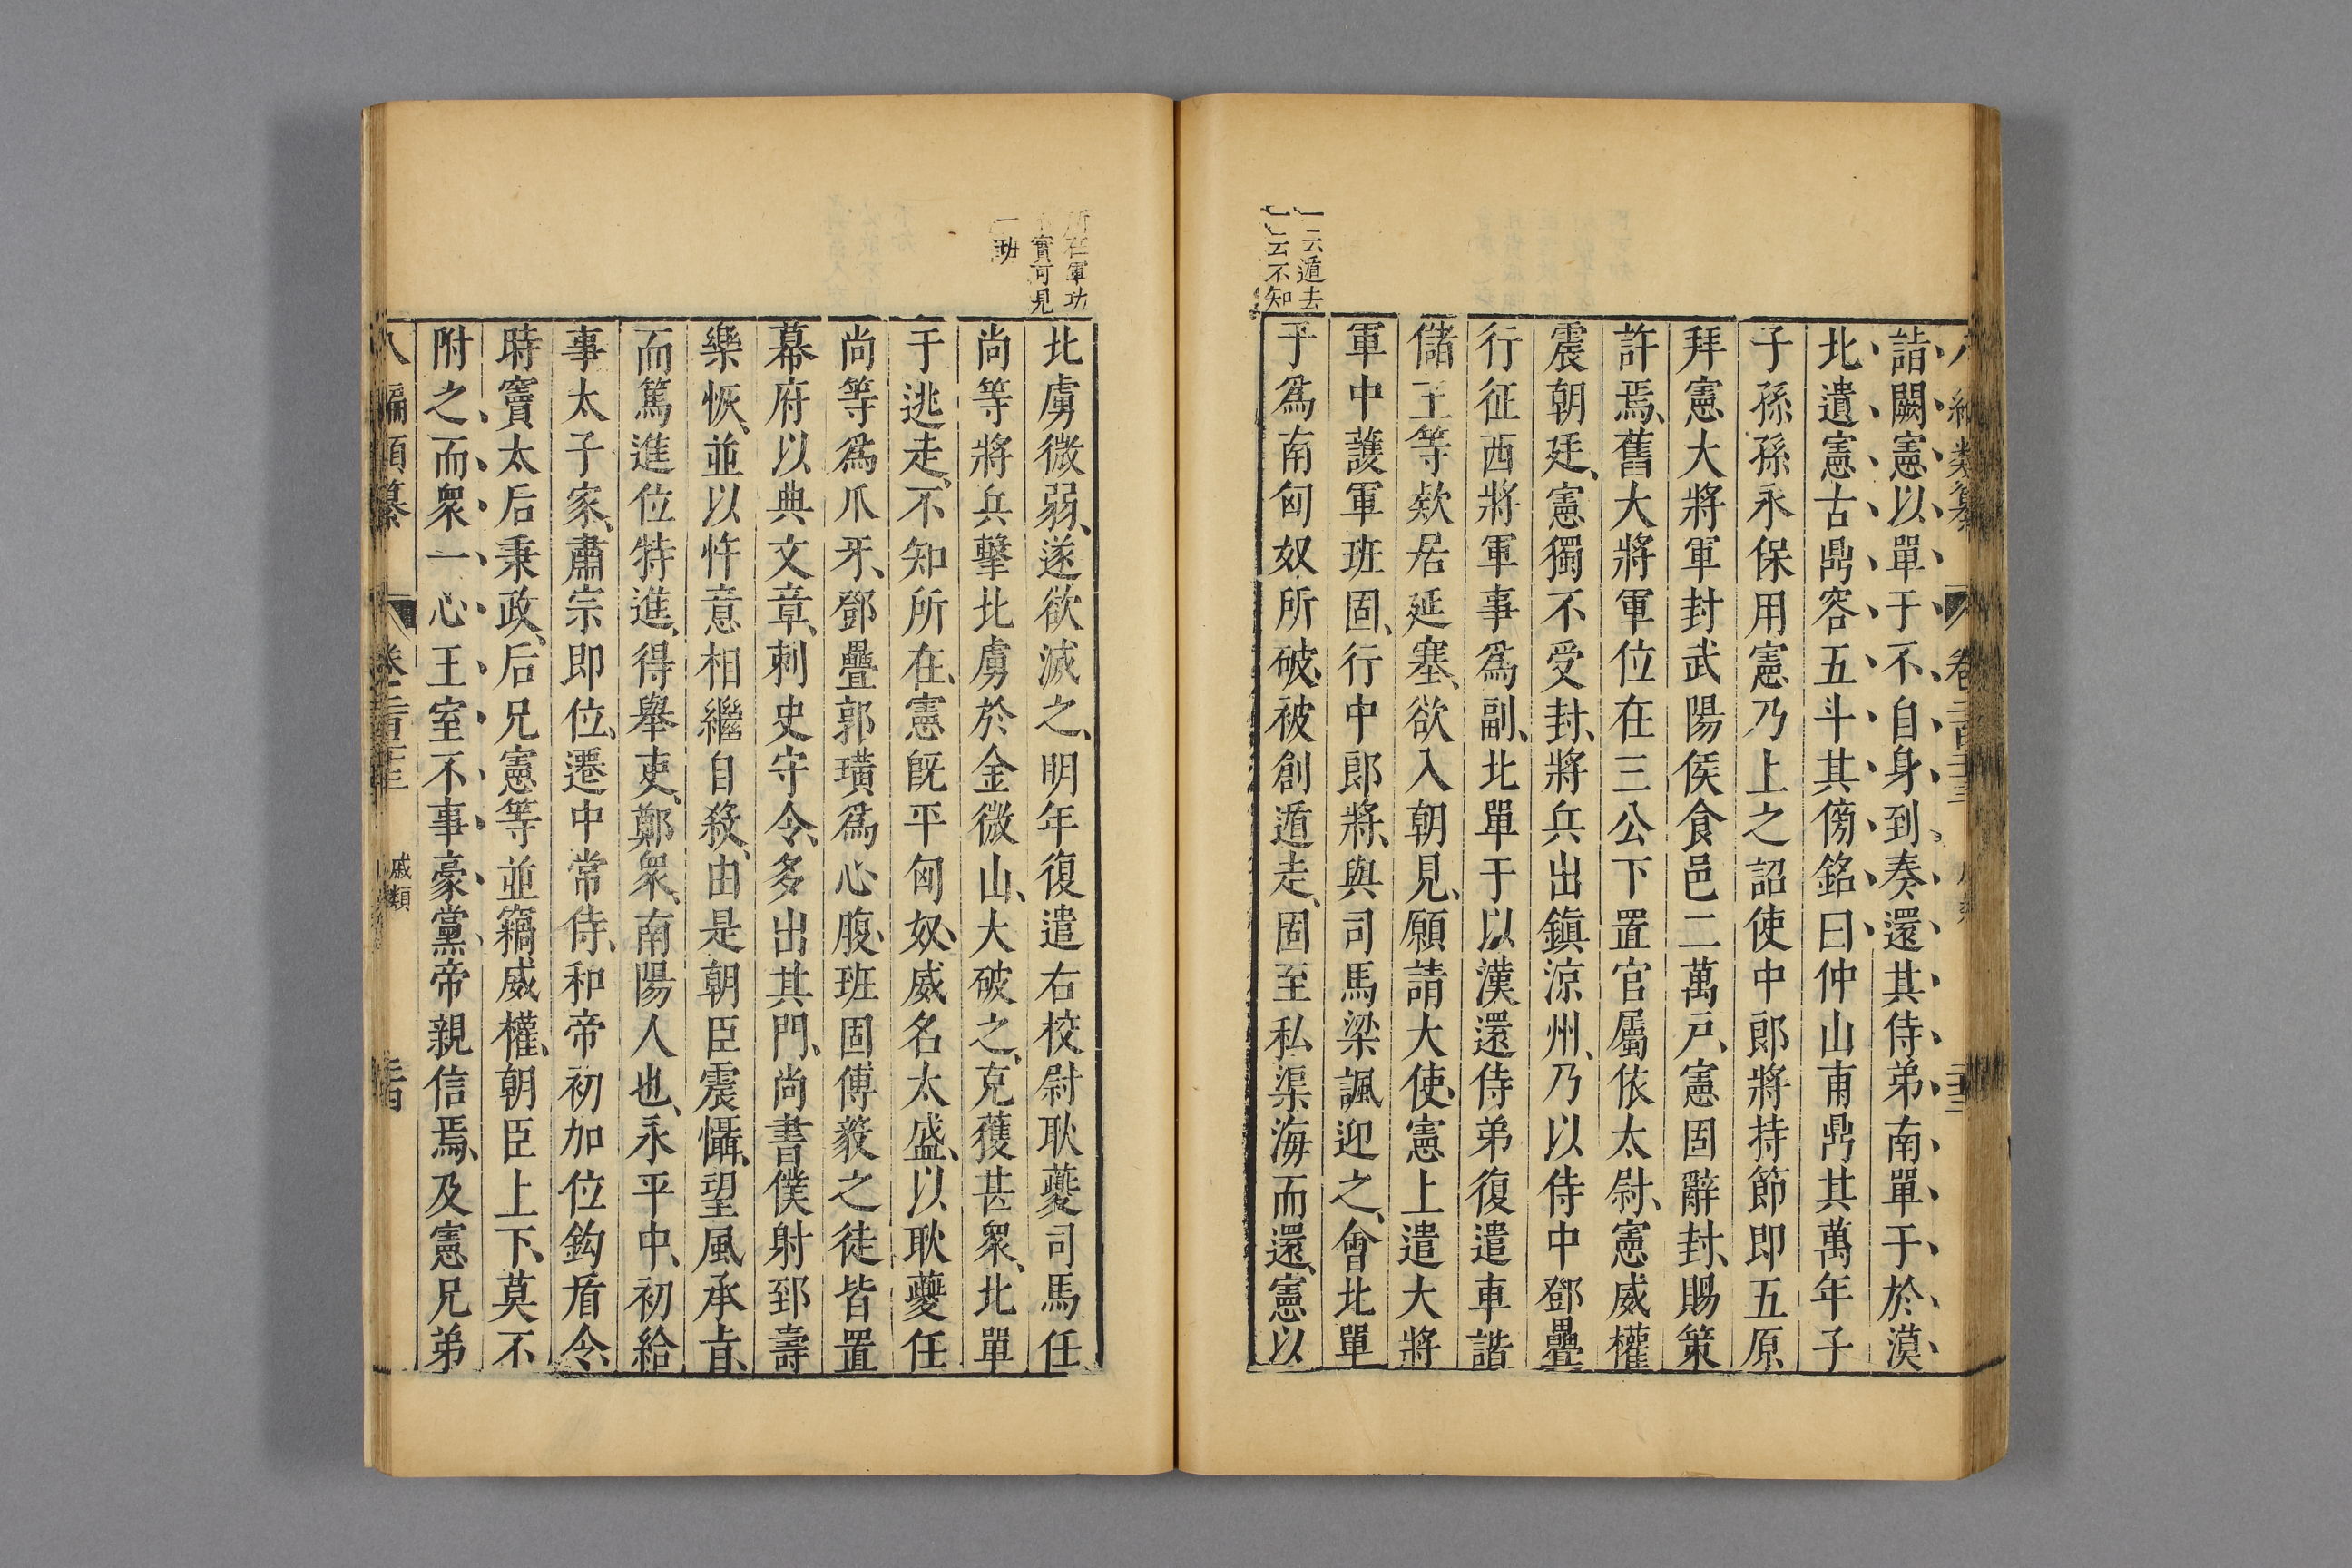 詣闕憲以單于不自身到奏還其侍弟南單于於漠
北遺憲古鼎容五斗其傍銘曰仲山甫鼎其萬年子
子孫孫永保用憲乃上之詔使中郎將持節即五原
拜憲大將軍封武陽侯食邑二萬戶憲固辭封賜策
許焉舊大將軍位在三公下置官屬依太尉憲威權
震朝廷憲獨不受封將兵出鎮涼州乃以侍中鄧疊
行征西將軍事爲副北單于以漢還侍弟復遣車諧
儲王等欵居延塞欲入朝見願請大使憲上遣大將
軍中護軍班固行中郎將與司馬梁諷迎之會北單
一云遁去
一云不知
于爲南匈奴所破被創遁走固至私渠海而還憲以
所在軍功
實可見
北虜微弱遂欲滅之明年復遣右校尉耿夔司馬任
一班
尚等將兵擊北虜於金微山大破之克獲甚衆北單
于逃走不知所在憲旣平匈奴威名太盛以耿夔任
尚等爲爪牙鄧疊郭璜爲心腹班固傅毅之徒皆置
幕府以典文章刺史守令多出其門尚書僕射郅壽
樂恢並以忤意相繼自殺由是朝臣震懾望風承旨
而篤進位特進得舉吏鄭衆南陽人也永平中初給
事太子家肅宗即位遷中常侍和帝初加位鈎盾令
時竇太后秉政后兄憲等並竊威權朝臣上下莫不
附之而衆一心王室不事豪黨帝親信焉及憲兄弟
八編類纂 卷二百二十三 戚類 二十四